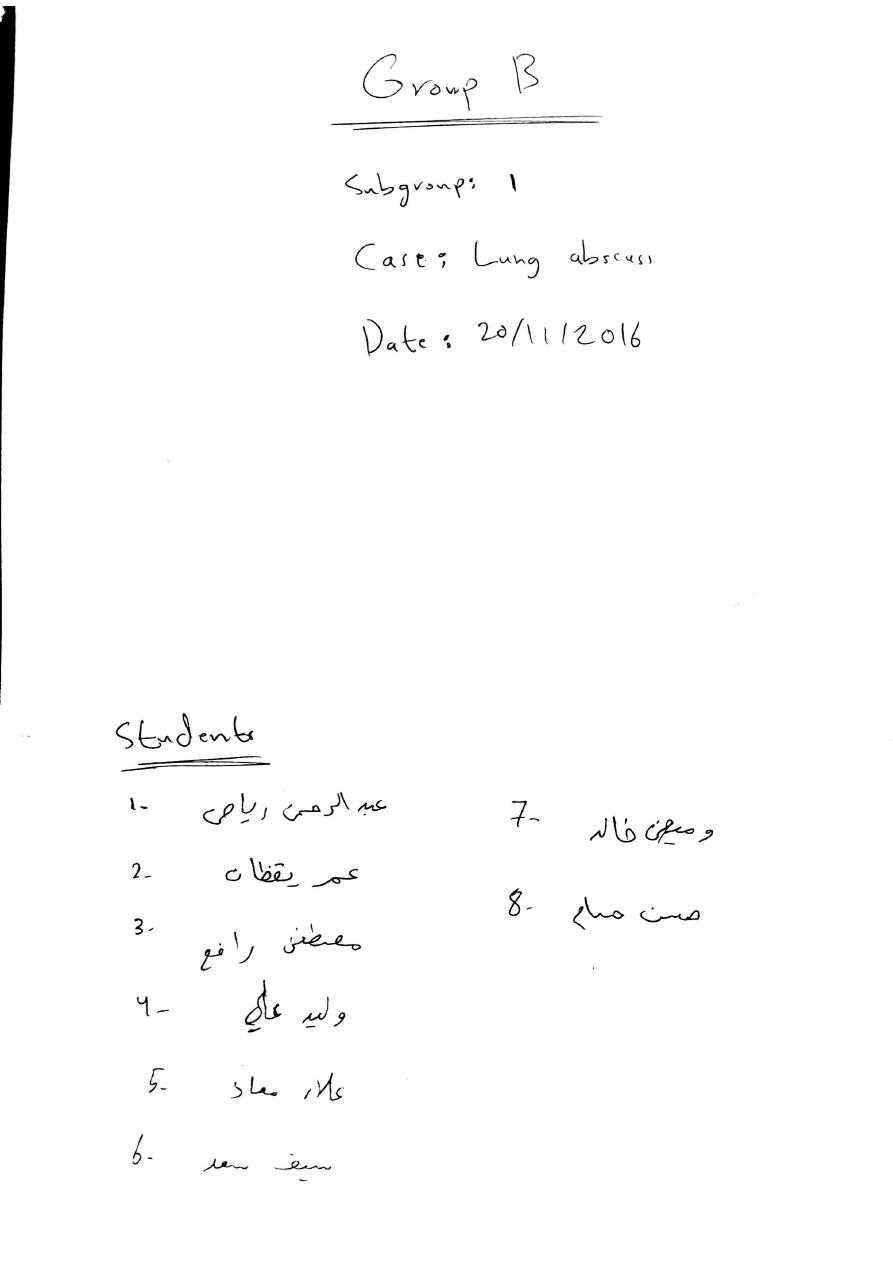 Group B
Subgroup: 1
Case: Lung abscuss
Date: 20/11/2016
Students
1- عبد الرحمن رياض
2- عمر يقظان
3- مصطفى رافع
4- وليد علي
5- علاء معاذ
6- سيف سعد
7- وميض خالد
8- حسن